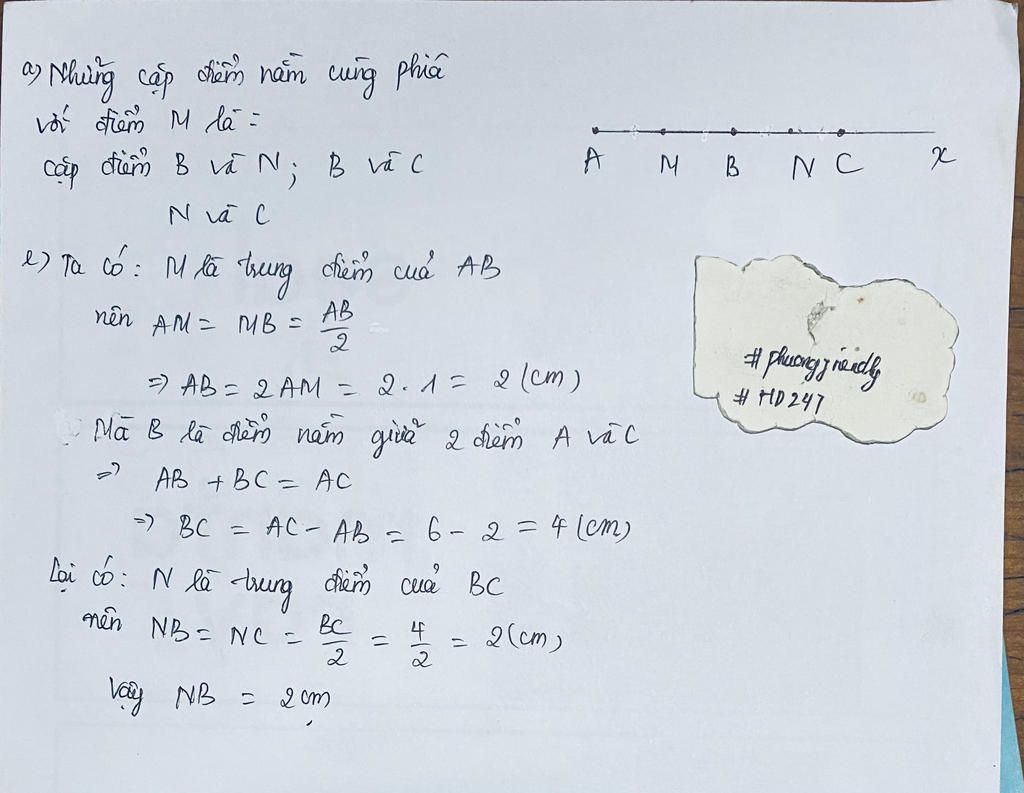 a) Những cặp điểm nằm cùng phía
với điểm M là:
cặp điểm B và N; B và C
N và C
A M B N C x
b) Ta có: M là trung điểm của AB
nên AM = MB = AB/2
=> AB = 2AM = 2 . 1 = 2 (cm)
Mà B là điểm nằm giữa 2 điểm A và C
=> AB + BC = AC
=> BC = AC - AB = 6 - 2 = 4 (cm)
Lại có: N là trung điểm của BC
nên NB = NC = BC/2 = 4/2 = 2 (cm)
Vậy NB = 2cm
# phuongfriendly
# HD247